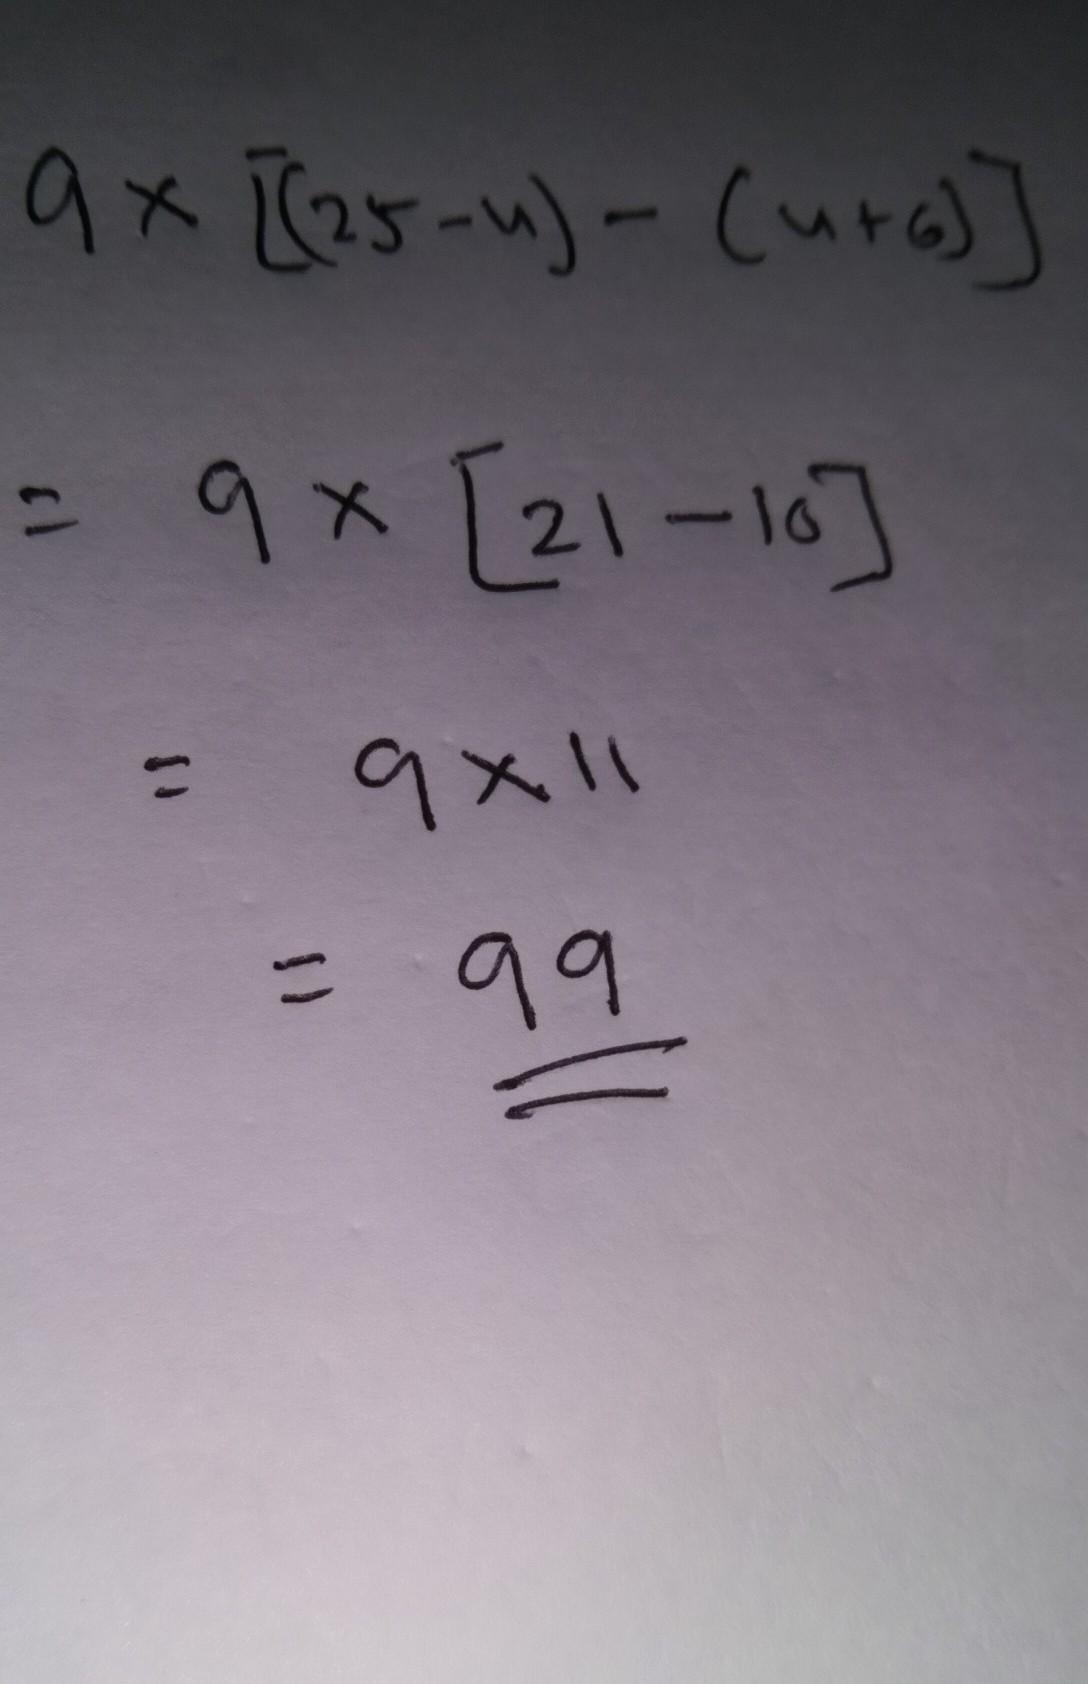 9 × [(25-4) - (4+6)]
= 9 × [21-10]
= 9×11
= 99